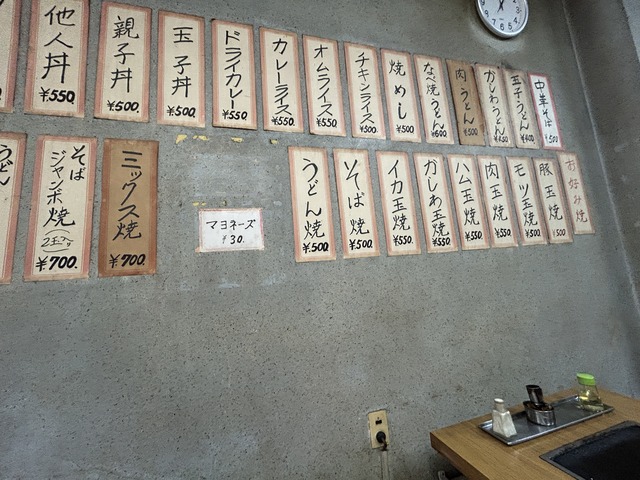 中華そば
¥500
玉子うどん
かしわうどん
肉うどん
¥500
なべ焼うどん
焼めし
¥500
チキンライス
¥500
オムライス
¥550
カレーライス
¥550
ドライカレー
¥550
玉子丼
¥500.
親子丼
¥500.
他人丼
¥550.
お好み焼
豚玉焼
¥500
モツ玉焼
¥500
肉玉焼
¥550
ハム玉焼
¥550
かしわ玉焼
¥550
イカ玉焼
¥550
そば焼
¥500
うどん焼
¥500
マヨネーズ
¥30.
ミックス焼
¥700.
そば
ジャンボ焼
(2玉)
¥700.
うどん